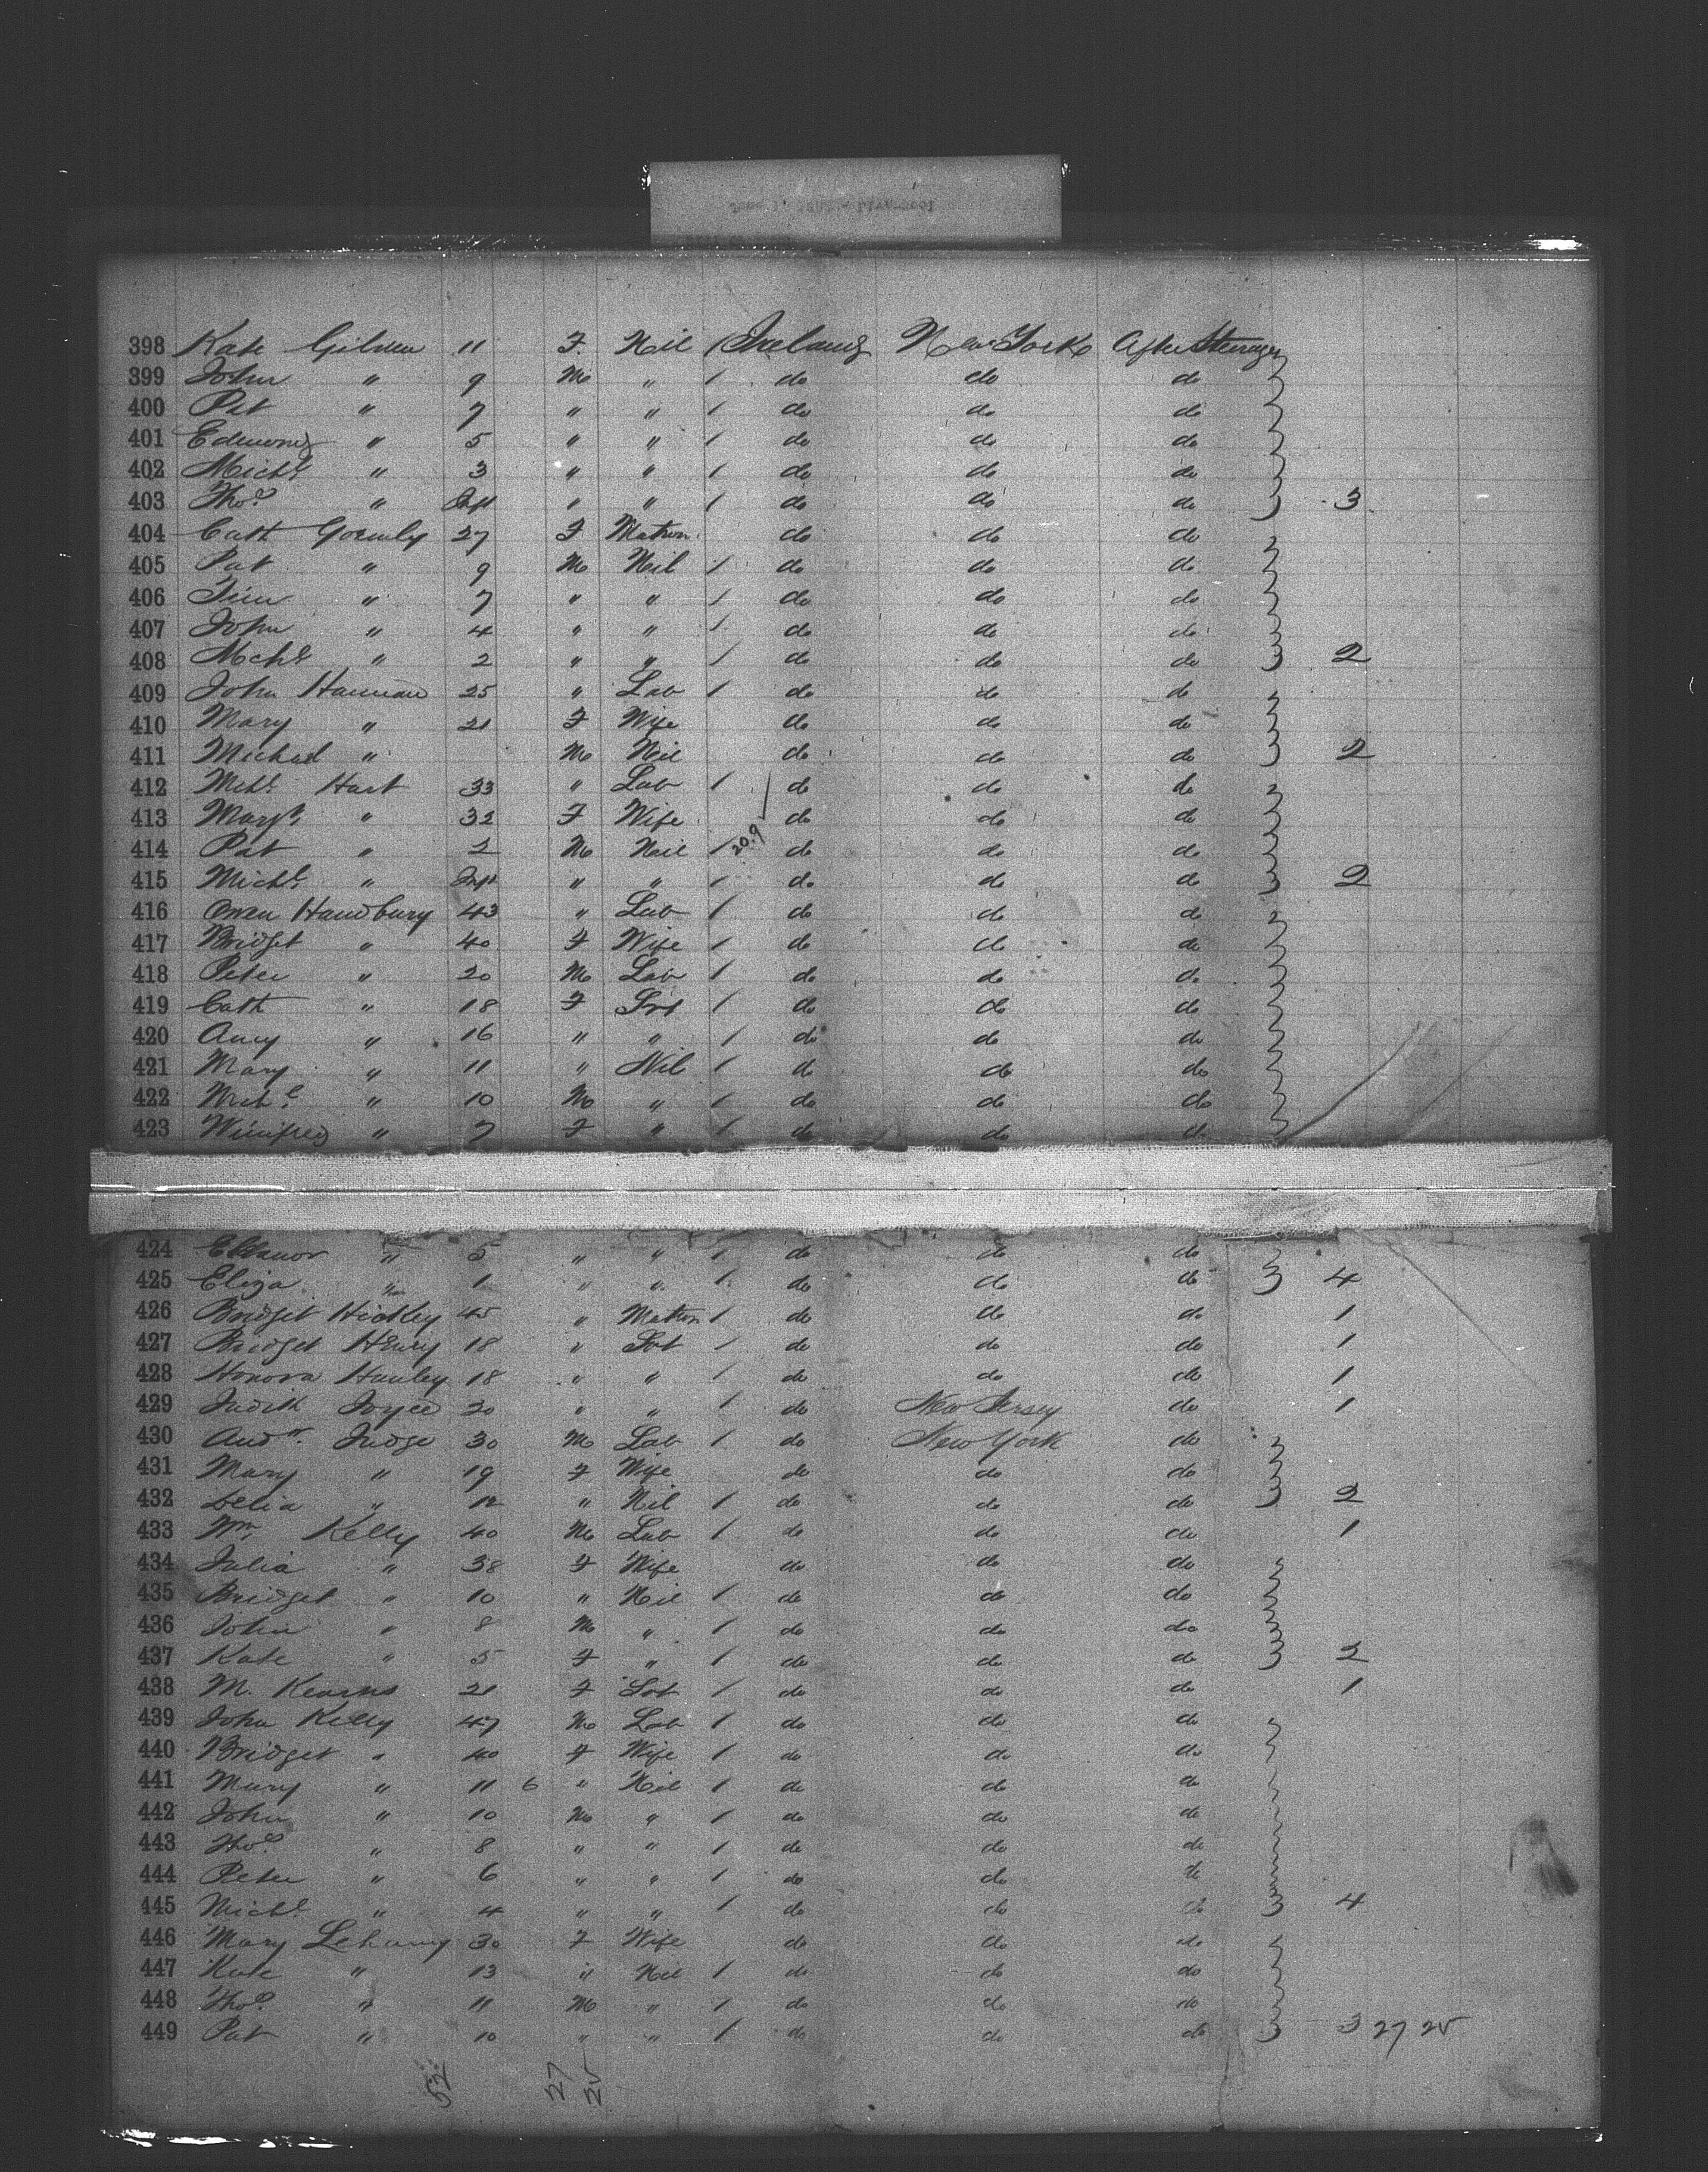 398 Kate Gilven 11 F. Nil 1 Ireland New York After Steerage
399 John " 9 M " 1 do do do
400 Pat " 7 " " 1 do do do
401 Edmond " 5 " " 1 do do do
402 Michl " 3 " " 1 do do do
403 Thos " Inft " " 1 do do do 3
404 Cath Gormly 27 F Matron do do do
405 Pat " 9 M Nil 1 do do do
406 Tim " 7 " " 1 do do do
407 John " 4 " " 1 do do do
408 Mchl " 2 " " 1 do do do 2
409 John Hannan 25 " Lab 1 do do do
410 Mary " 21 F Wife do do do
411 Michael " M Nil do do do 2
412 Mchl Hart 33 " Lab 1 do do do
413 Margt " 32 F Wife do do do
414 Pat " 2 M Nil 1 20.9 do do do
415 Michl " Inft " " 1 do do do 2
416 Owen Handbury 43 " Lab 1 do do do
417 Bridget " 40 F Wife 1 do do do
418 Peter " 20 M Lab 1 do do do
419 Cath " 18 F Svt 1 do do do
420 Amy " 16 " " 1 do do do
421 Mary " 11 " Nil 1 do do do
422 Michl " 10 M " 1 do do do
423 Winifred " 7 F " 1 do do do
424 Eleanor " 5 " " 1 do do do
425 Eliza " 1 " " 1 do do do 4
426 Bridget Hickey 45 " Matron 1 do do do 1
427 Bridget Henry 18 " Svt 1 do do do 1
428 Honora Hanley 18 " " 1 do do do 1
429 Judith Joyce 20 " " 1 do New Jersey do 1
430 Andw Judge 30 M Lab 1 do New York do
431 Mary " 19 F Wife do do do
432 Delia " 12 " Nil 1 do do do 2
433 Wm Kelly 40 M Lab 1 do do do 1
434 Julia " 38 F Wife do do do
435 Bridget " 10 " Nil 1 do do do
436 John " 8 M " 1 do do do
437 Kate " 5 F " 1 do do do 2
438 M. Kearns 21 F Svt 1 do do do 1
439 John Kelly 47 M Lab 1 do do do
440 Bridget " 40 F Wife 1 do do do
441 Mary " 11 6 " Nil 1 do do do
442 John " 10 M " 1 do do do
443 Thos " 8 " " 1 do do do
444 Peter " 6 " " 1 do do do
445 Michl " 4 " " 1 do do do 4
446 Mary Lehany 30 F Wife do do do
447 Kate " 13 " Nil 1 do do do
448 Thos " 11 M " 1 do do do
449 Pat " 10 " " 1 do do do 3 27 25
52 27 25